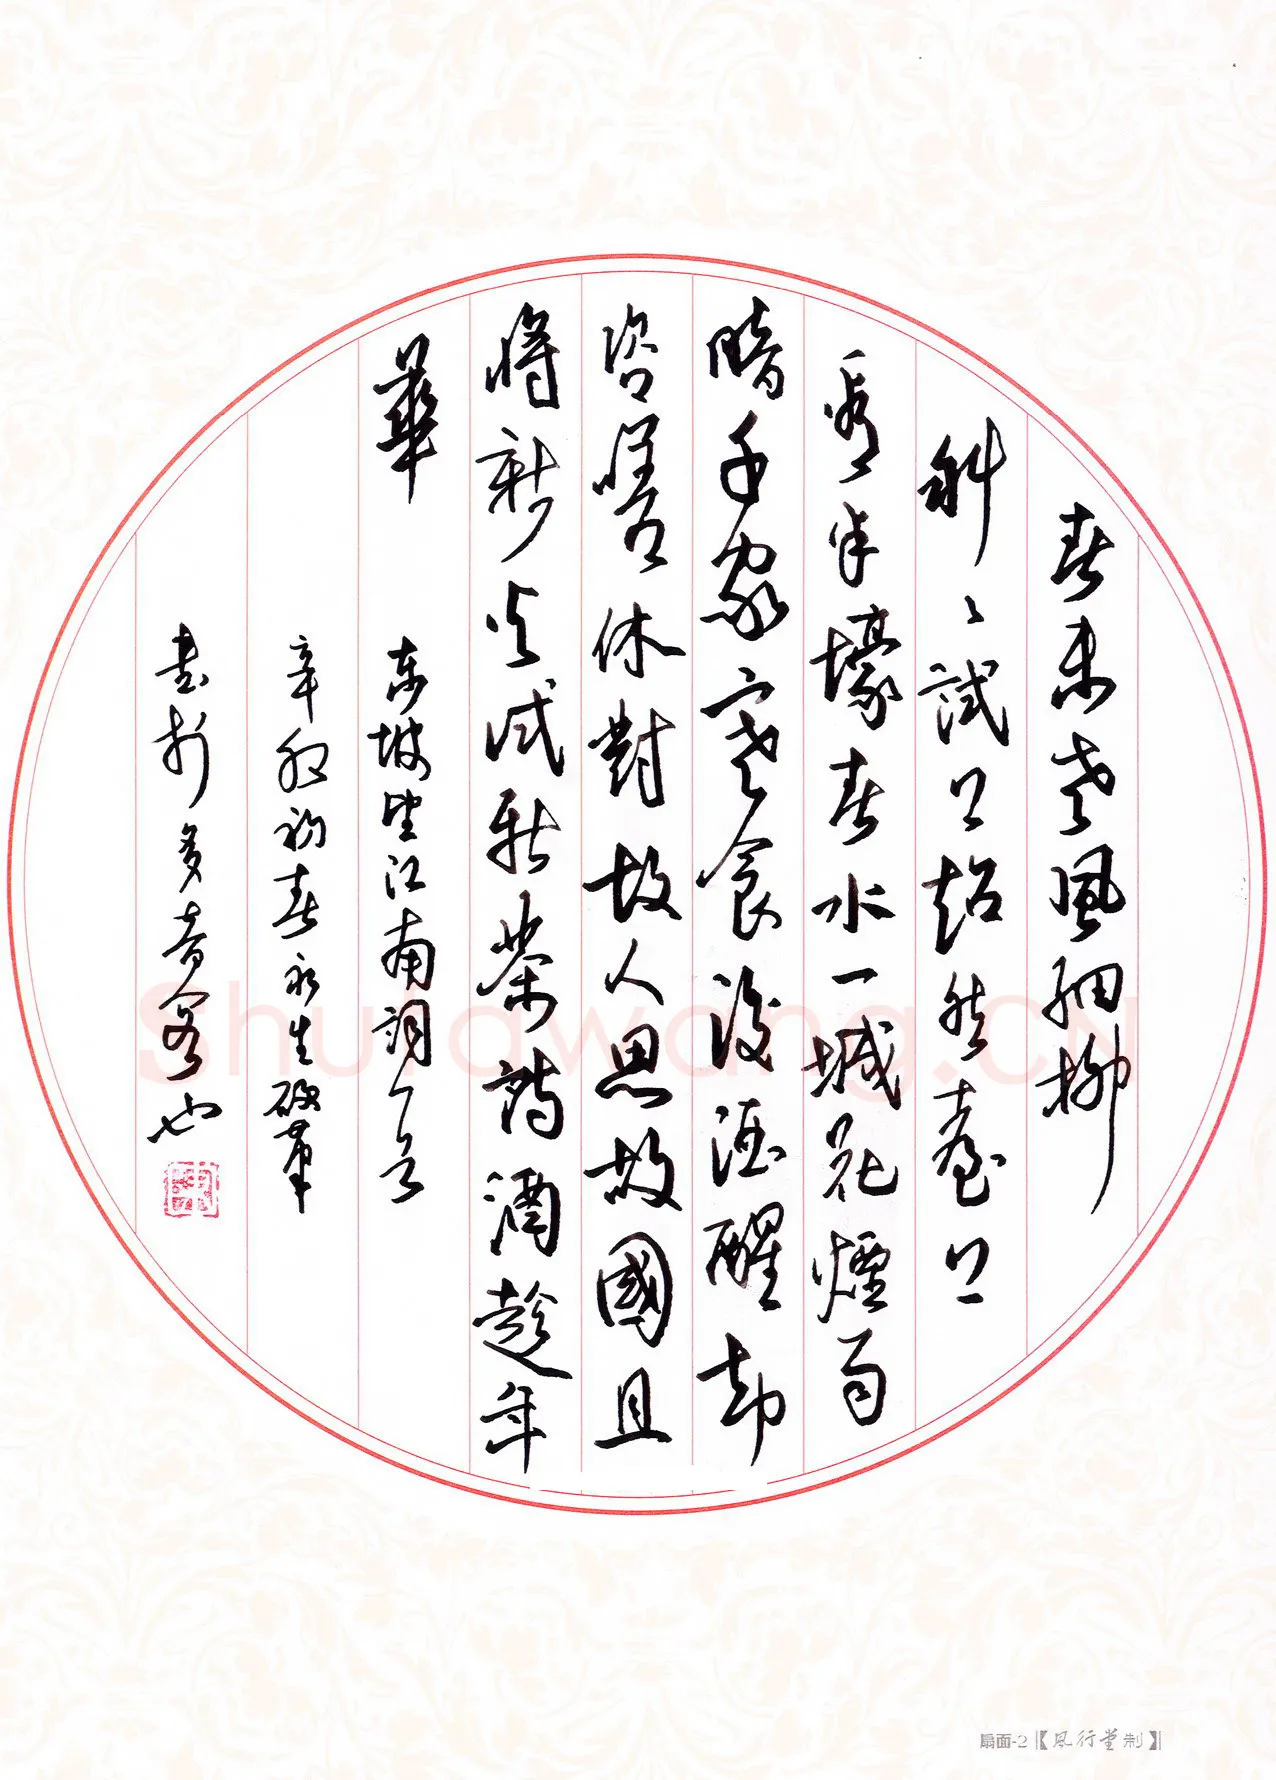 春未老風細柳
斜〻試上超然臺上
看半壕春水一城花煙雨
暗千家寒食後酒醒却
咨嗟休對故人思故國且
將新火試新茶詩酒趁年
華
东坡望江南詞一首
辛卯初春永生硬筆
書於多音也
Shufawang.CN
扇面-2【風行堂制】